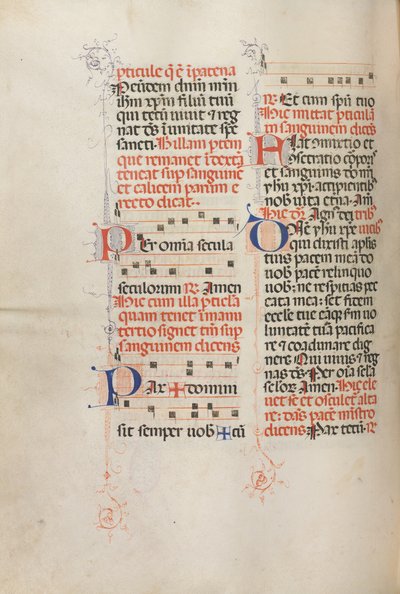 pticule q̄ ē ī patena
Per eundem dnm nrm
ihm xpm filiũ tuũ
qui tecũ uiuit ⁊ reg
nat ds̄ ī unitate sps̄
sancti. Hic illam ptem
que remanet ī dextra
teneat sup sanguinē
et calicem parum e
recto dicat.
Per om̄ia secula
seculorum ℟. Amen
Hic cum illa pticl̄a
quam tenet ī manu
tertio signet t̄m̄ sup
sanguinem dicens
Pax ✠ domini
sit semper uob ✠ cũ
℟. Et cum spũ tuo
Hic mittat pticulā
in sanguinem dicēs
Hec mixtio et
cōsecratio corpor̄
et sanguinis dn̄i nr̄i
yhu xpi accipientib̄
nob̄ uita etna. Am̄
Hic d̄r. Agn̄ dei trib̄
Dn̄e yhu xpe uicib̄
qui dixisti aplis
tuis pacem meā do
uob̄ pacē relinquo
uob̄: ne respitias pec
cata mea: set fidem
ecclē tue eāqȝ s̄m uo
luntatē tuā pacifica
re ⁊ coadunare dig
neris. Qui uiuis ⁊ reg
nas ds̄. Per oīa secla
sclor̄. Amen. Hic ele
uet se et osculet alta
re: dās pacē mistro
dicens. Pax tecū. ℟